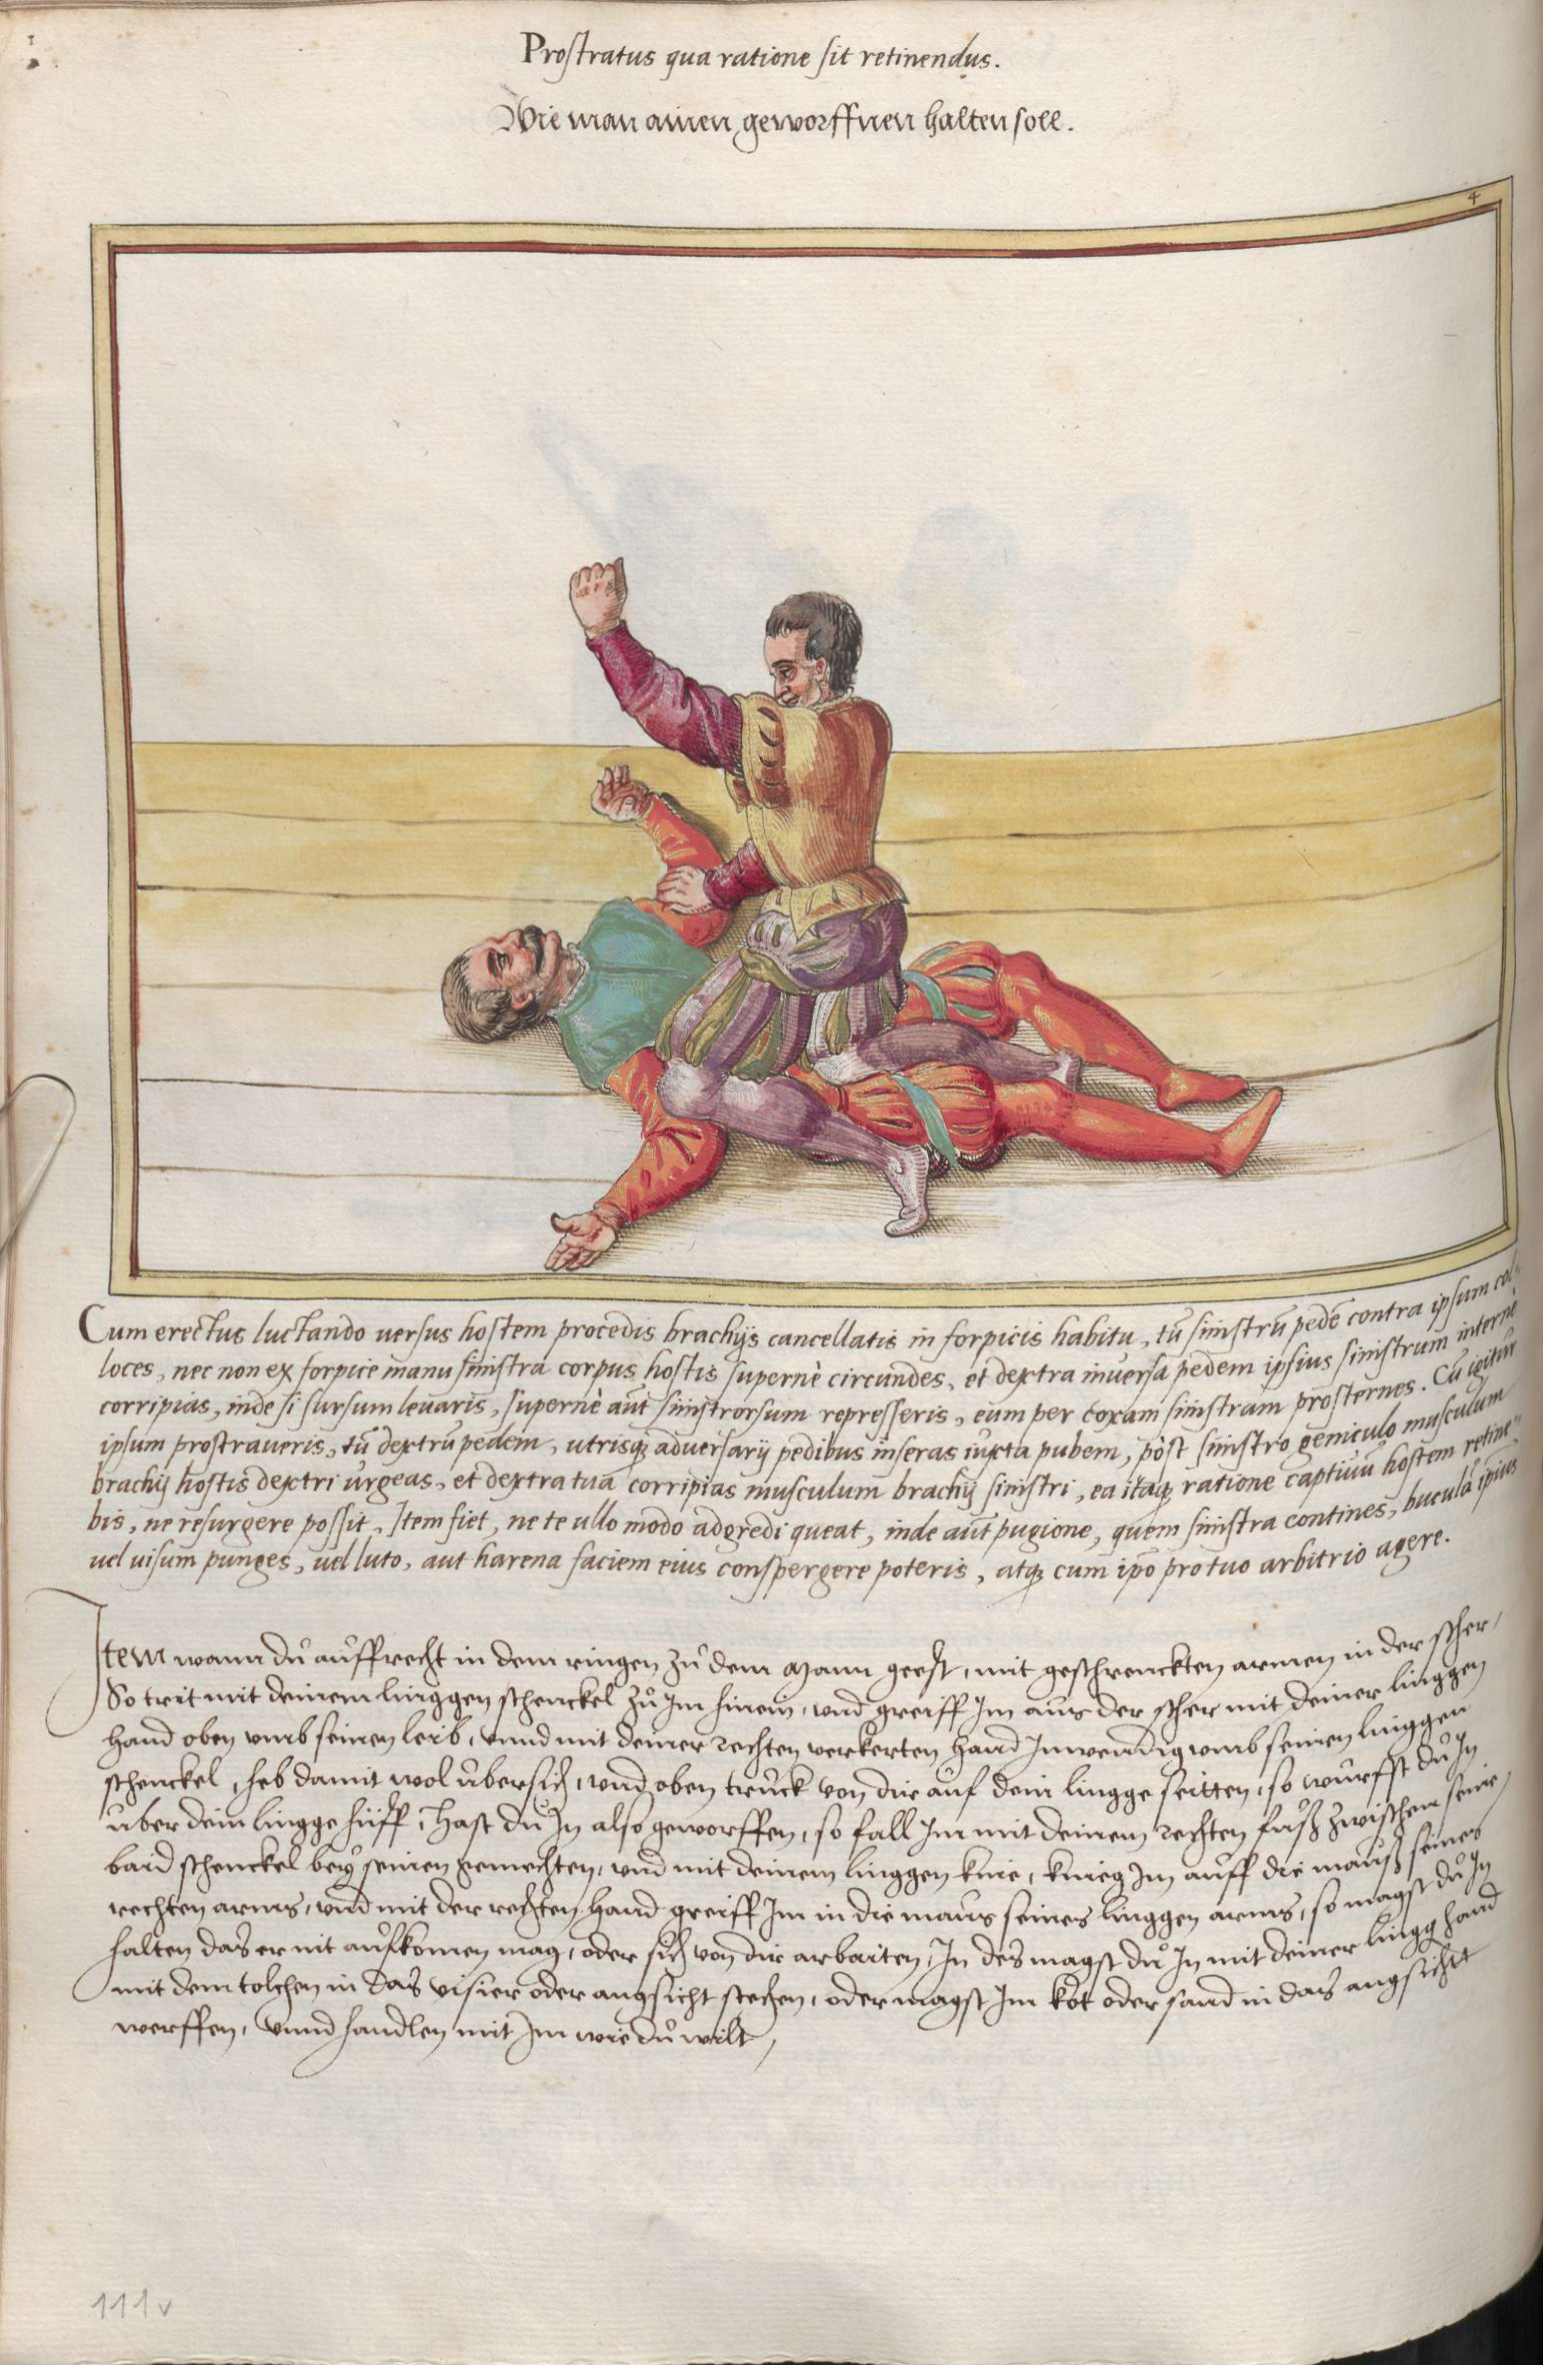 Prostratus qua ratione sit retinendus.
Wie man ainen geworffnen halten soll.
4
Cum erectus luctando uersus hostem procedis brachijs cancellatis in forpicis habitu, tū sinistrū pedē contra ipsum col⸗
loces, nec non ex forpice manu sinistra corpus hostis supernè circundes, et dextra inuersa pedem ipsius sinistrum internè
corripias, inde si sursum leuaris, supernè aūt sinistrorsum represseris, eum per coxam sinistram prosternes. Cū igitur
ipsum prostraueris, tū dextrū pedem, utrisq; aduersarij pedibus inseras iuxta pubem, pòst sinistro geniculo musculum
brachij hostis dextri urgeas, et dextra tua corripias musculum brachij sinistri, ea itaq; ratione captiuū hostem retine⸗
bis, ne resurgere possit, Item fiet, ne te ullo modo adgredi queat, inde aūt pugione, quem sinistra contines, buculā ipsius
uel uisum punges, uel luto, aut harena faciem eius conspergere poteris, atq; cum ipō pro tuo arbitrio agere.
Item wann dů auffrecht in dem ringen zů dem Mann geest, mit geschrenckten armen in der scher,
So trit mit deinem linggen schenckel zů Im hinein, und greiff Im aus der scher mit deiner linggen
hand oben umb seinen leib, unnd mit deiner rechten verkerten hand Inwendig umb seinen linggen
schenckel, heb damit wol ubersich, und oben truck von dir auf dein lingge seitten, so wurfst dů In
uber dein lingge hüff, Hast dů In also geworffen, so fall Im mit deinem rechten fuß zwischen seine
baid schenckel bey seinen gemechten, und mit deinem linggen knie, knieg Im auff die mauß seines
rechten arms, und mit der rechten hand greiff Im in die maus seines linggen arms, so magst dů In
halten das er nit aufkomen mag, oder sich von dir arbaiten, In des magst dů In mit deiner lingg hand
mit dem tolchen in das visier oder angsicht stechen, oder magst Im kot oder sand in das angsicht
werffen, Unnd handlen mit Im wie dů wilt,
111v